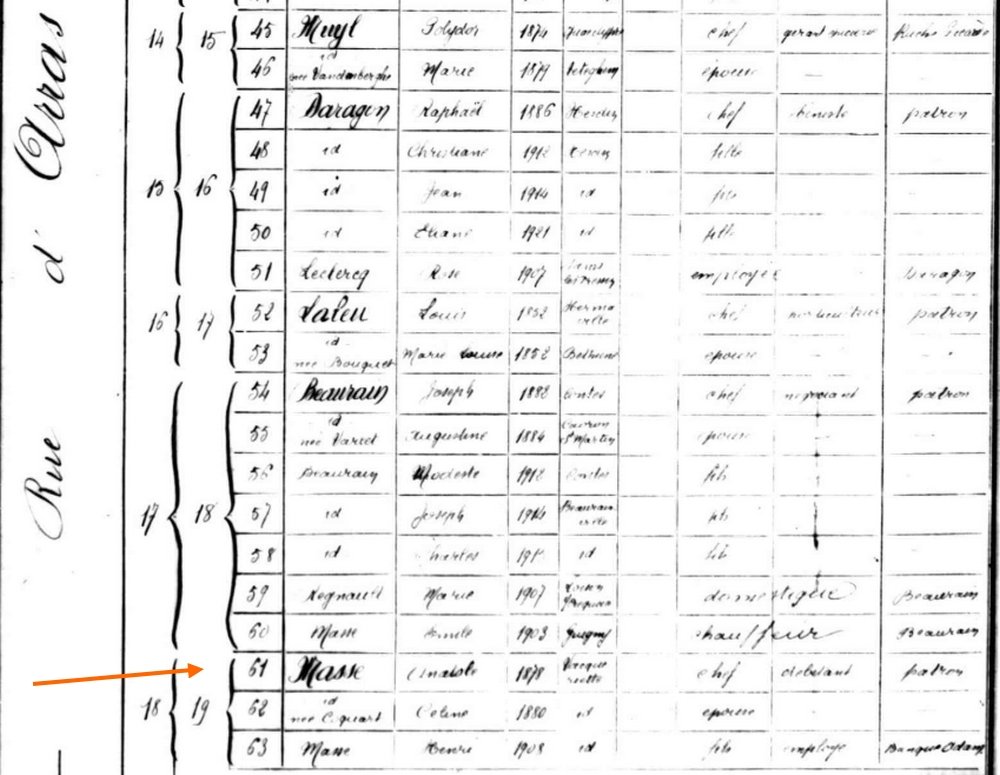 Rue d' Arras
14 15 45 Muyl Polydor 1874 chef gérant
46 id née Vandenberghe Marie 1879 épouse —
47 Daragon Raphaël 1886 Hesdin chef patron
48 id Christiane 1912 fille
15 16 49 id Jean 1914 id fils
50 id 1921 id fille
51 Leclercq Rose 1907 employée Daragon
16 17 52 Laleu Louis 1852 chef patron
53 id née Bouquet Marie Louise 1852 Bethune épouse —
54 Beaurain Joseph 1882 Contes chef négociant patron
55 id née Varlet Augustine 1884 Cavron St Martin épouse —
56 Beaurain Modeste 1912 Contes fils
17 18 57 id Joseph 1914 Beaurainville fils
58 id Charles id fils
59 Regnault Marie 1907 domestique Beaurain
60 Masse Emile 1903 Guigny chauffeur Beaurain
61 Masse Anatole 1878 Vacqueriette chef débitant patron
18 19 62 id née Coquart Celine 1880 id épouse —
63 Masse Henri 1908 id fils employé Banque Adam